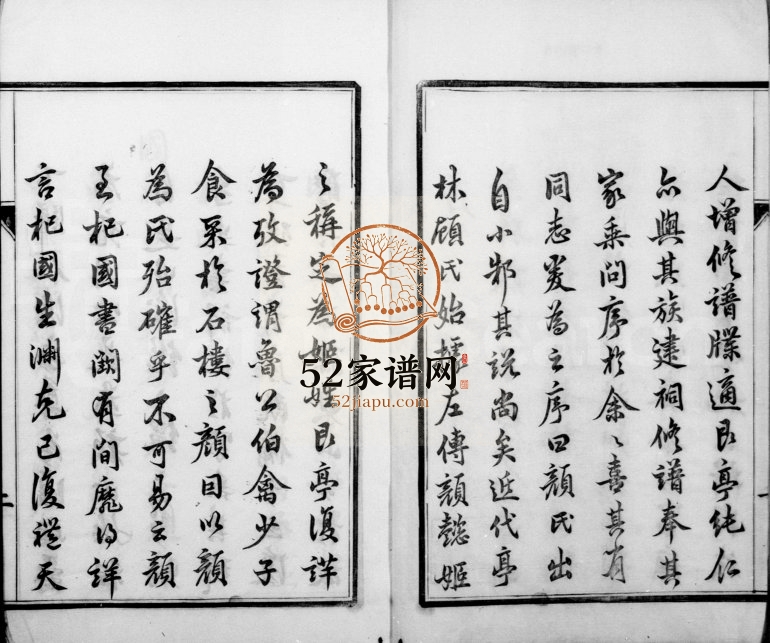 人增修譜牒適艮亭純仁
亦與其族建祠修譜奉其
家乘問序於余〻喜其有
同志爰為之序曰顏氏出
自小邾其說尚矣近代亭
林顧氏始據左傳顏懿姬
之稱定為姬姓艮亭復詳
為攷證謂魯公伯禽少子
食采於石樓之顏因以顏
為氏殆確乎不可易云顏
至杞國書闕有間靡得詳
言杞國生淵克己復禮天
二
52家谱网
52jiapu.com